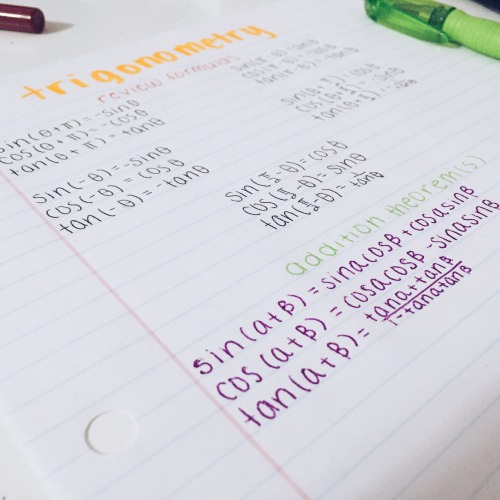 trigonometry
review formulas
sin(θ+π)=-sinθ
cos(θ+π)=-cosθ
tan(θ+π)=tanθ
sin(-θ)=-sinθ
cos(-θ)=cosθ
tan(-θ)=-tanθ
sin(π/2-θ)=cosθ
cos(π/2-θ)=sinθ
tan(π/2-θ)=1/tanθ
addition theorem(s)
sin(a+β)=sinacosβ+cosasinβ
cos(a+β)=cosacosβ-sinasinβ
tan(a+β)=tana+tanβ/1-tanatanβ